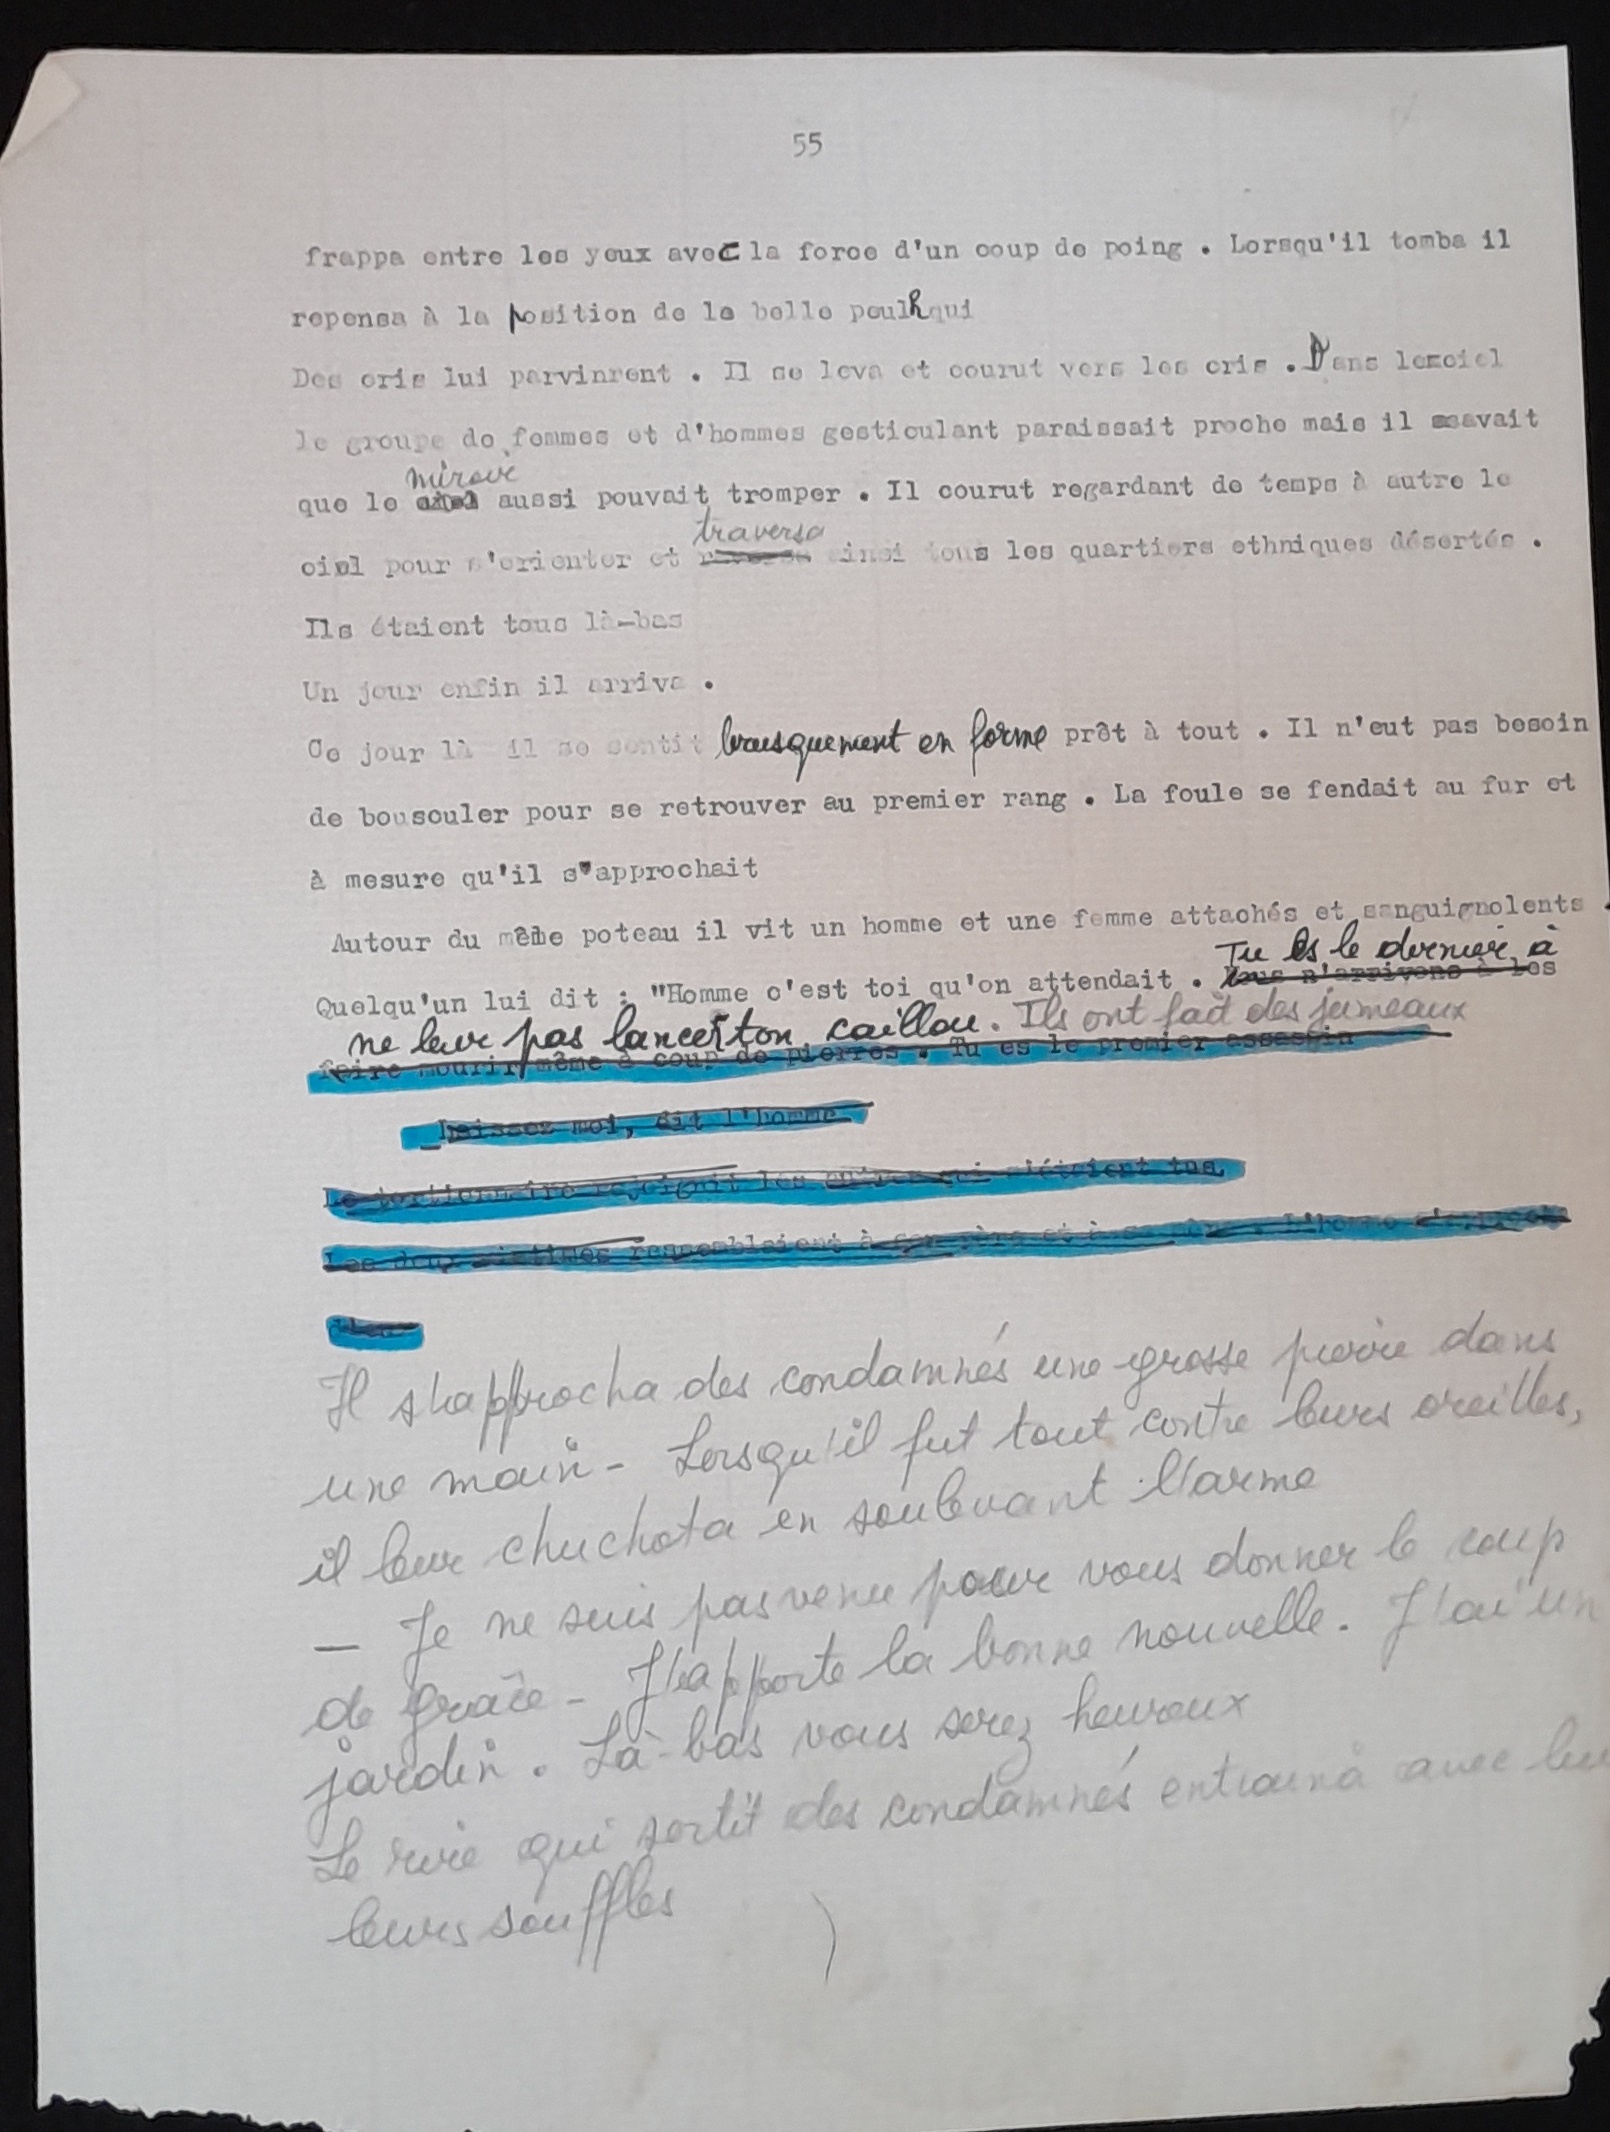 55
frappa entre les yeux avec la force d'un coup de poing . Lorsqu'il tomba il
repensa à la position de la belle peulh qui
Des cris lui parvinrent . Il se leva et courut vers les cris . Dans le ciel
le groupe de femmes et d'hommes gesticulant paraissait proche mais il savait
miroir
que le ciel aussi pouvait tromper . Il courut regardant de temps à autre le
traversa
ciel pour s'orienter et ainsi tous les quartiers ethniques désertés .
Ils étaient tous là-bas
Un jour enfin il arriva .
Ce jour là il se sentit brusquement en forme prêt à tout . Il n'eut pas besoin
de bousouler pour se retrouver au premier rang . La foule se fendait au fur et
à mesure qu'il s'approchait
Autour du même poteau il vit un homme et une femme attachés et sanguignolents .
Tu es le dernier à
Quelqu'un lui dit : "Homme c'est toi qu'on attendait . Nous n'arrivons à les
ne leur pas lancer ton caillou. Ils ont fait des jumeaux
faire mourir même à coup de pierres . Tu es le premier assassin
_Laissez moi, dit l'homme
Le tortionnaire rejoignit les autres qui s'étaient tus
Les deux victimes ressemblaient à son père et à sa mère . L'homme
Il s'approcha des condamnés une grosse pierre dans
une main - Lorsqu'il fut tout contre leurs oreilles,
il leur chuchota en soulevant l'arme
— Je ne suis pas venu pour vous donner le coup
de grâce - J'apporte la bonne nouvelle. J'ai un
jardin . Là-bas vous serez heureux
Le rire qui sortit des condamnés entraina avec
leurs souffles